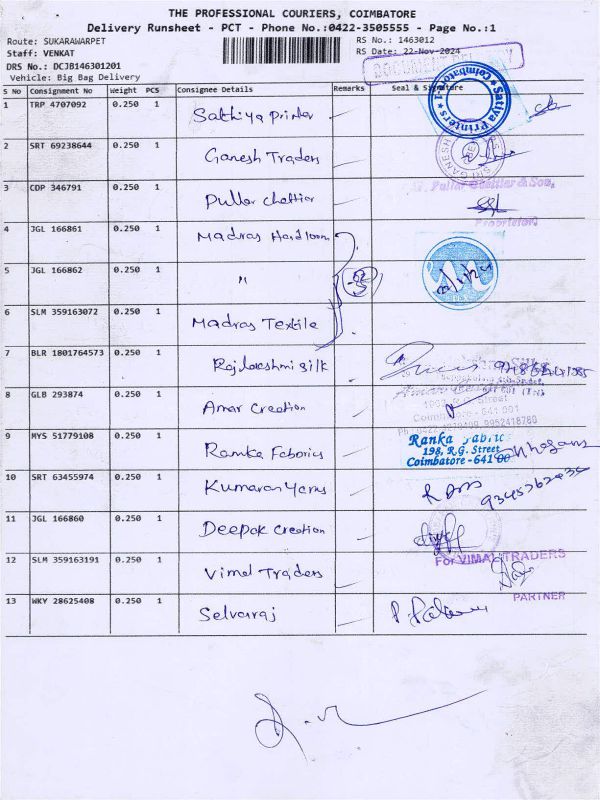 THE PROFESSIONAL COURIERS, COIMBATORE
Delivery Runsheet - PCT - Phone No.:0422-3505555 - Page No.:1
Route: SUKARAWARPET RS No.: 1463012
Staff: VENKAT RS Date: 22-Nov-2024
DRS No.: DCJB146301201
Vehicle: Big Bag Delivery
DOCUMENT DELIVERY
S No Consignment No Weight PCS Consignee Details Remarks Seal & Signature
1 TRP 4707092 0.250 1 Sathiya Printer
Sathya Printers Coimbatore-1
2 SRT 69238644 0.250 1 Ganesh Traders
SRI GANESH
3 CDP 346791 0.250 1 Pullar chettiar
Pullar Chettiar & Son,
Proprietor
4 JGL 166861 0.250 1 Madras Handloom
5 JGL 166862 0.250 1 "
3
6 SLM 359163072 0.250 1 Madras Textile
7 BLR 1801764573 0.250 1 Rajlakshmi Silk
8 GLB 293874 0.250 1 Amar Creation
R.G. Street
Coimbatore - 641 001
9952418780
9 MYS 51779108 0.250 1 Ramka Faborics
Ranka Fabrics
198, R.G. Street
Coimbatore - 641 001
10 SRT 63455974 0.250 1 Kumaran Yarns
11 JGL 166860 0.250 1 Deepak Creation
12 SLM 359163191 0.250 1 Vimal Traders
For VIMAL TRADERS
PARTNER
13 WKY 28625408 0.250 1 Selvaraj